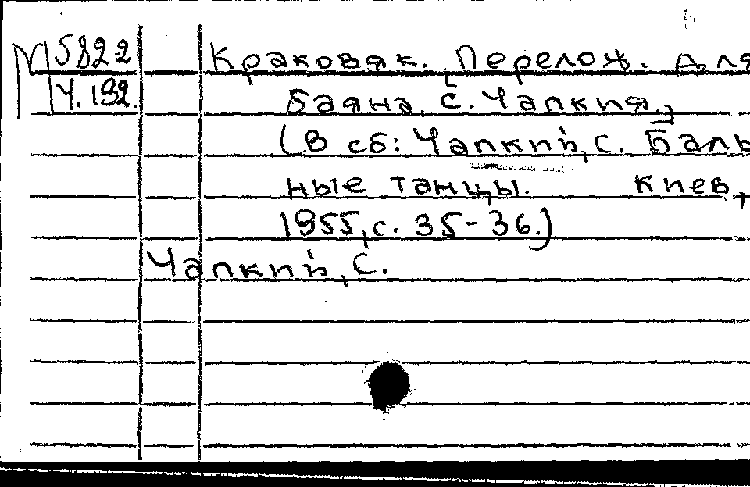 М 5822
Ч.192.
Краковяк. Перелож. для
баяна, С. Чапкия,
(В сб: Чапкий, С. Баль
ные танцы. Киев,
1955, с. 35-36.)
Чапкий, С.